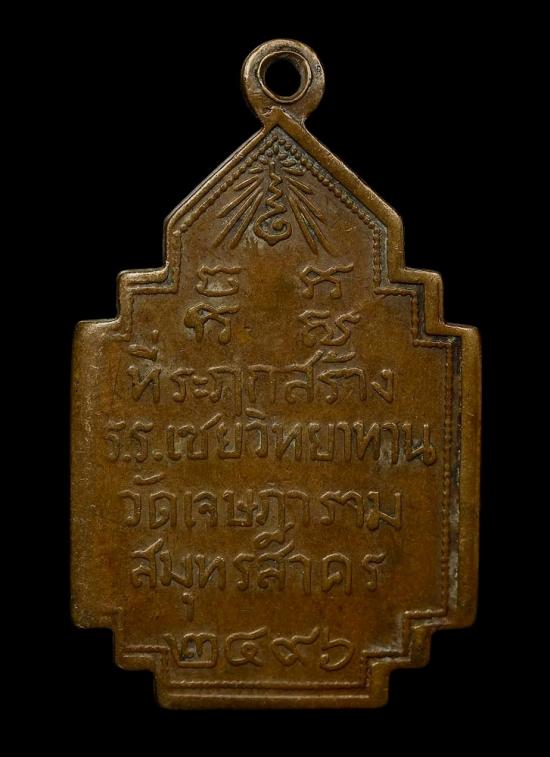 ที่ระฦกสร้าง
ร.ร.เชยวิทยาทาน
วัดเจษฎาราม
สมุทรสาคร
๒๔๙๖